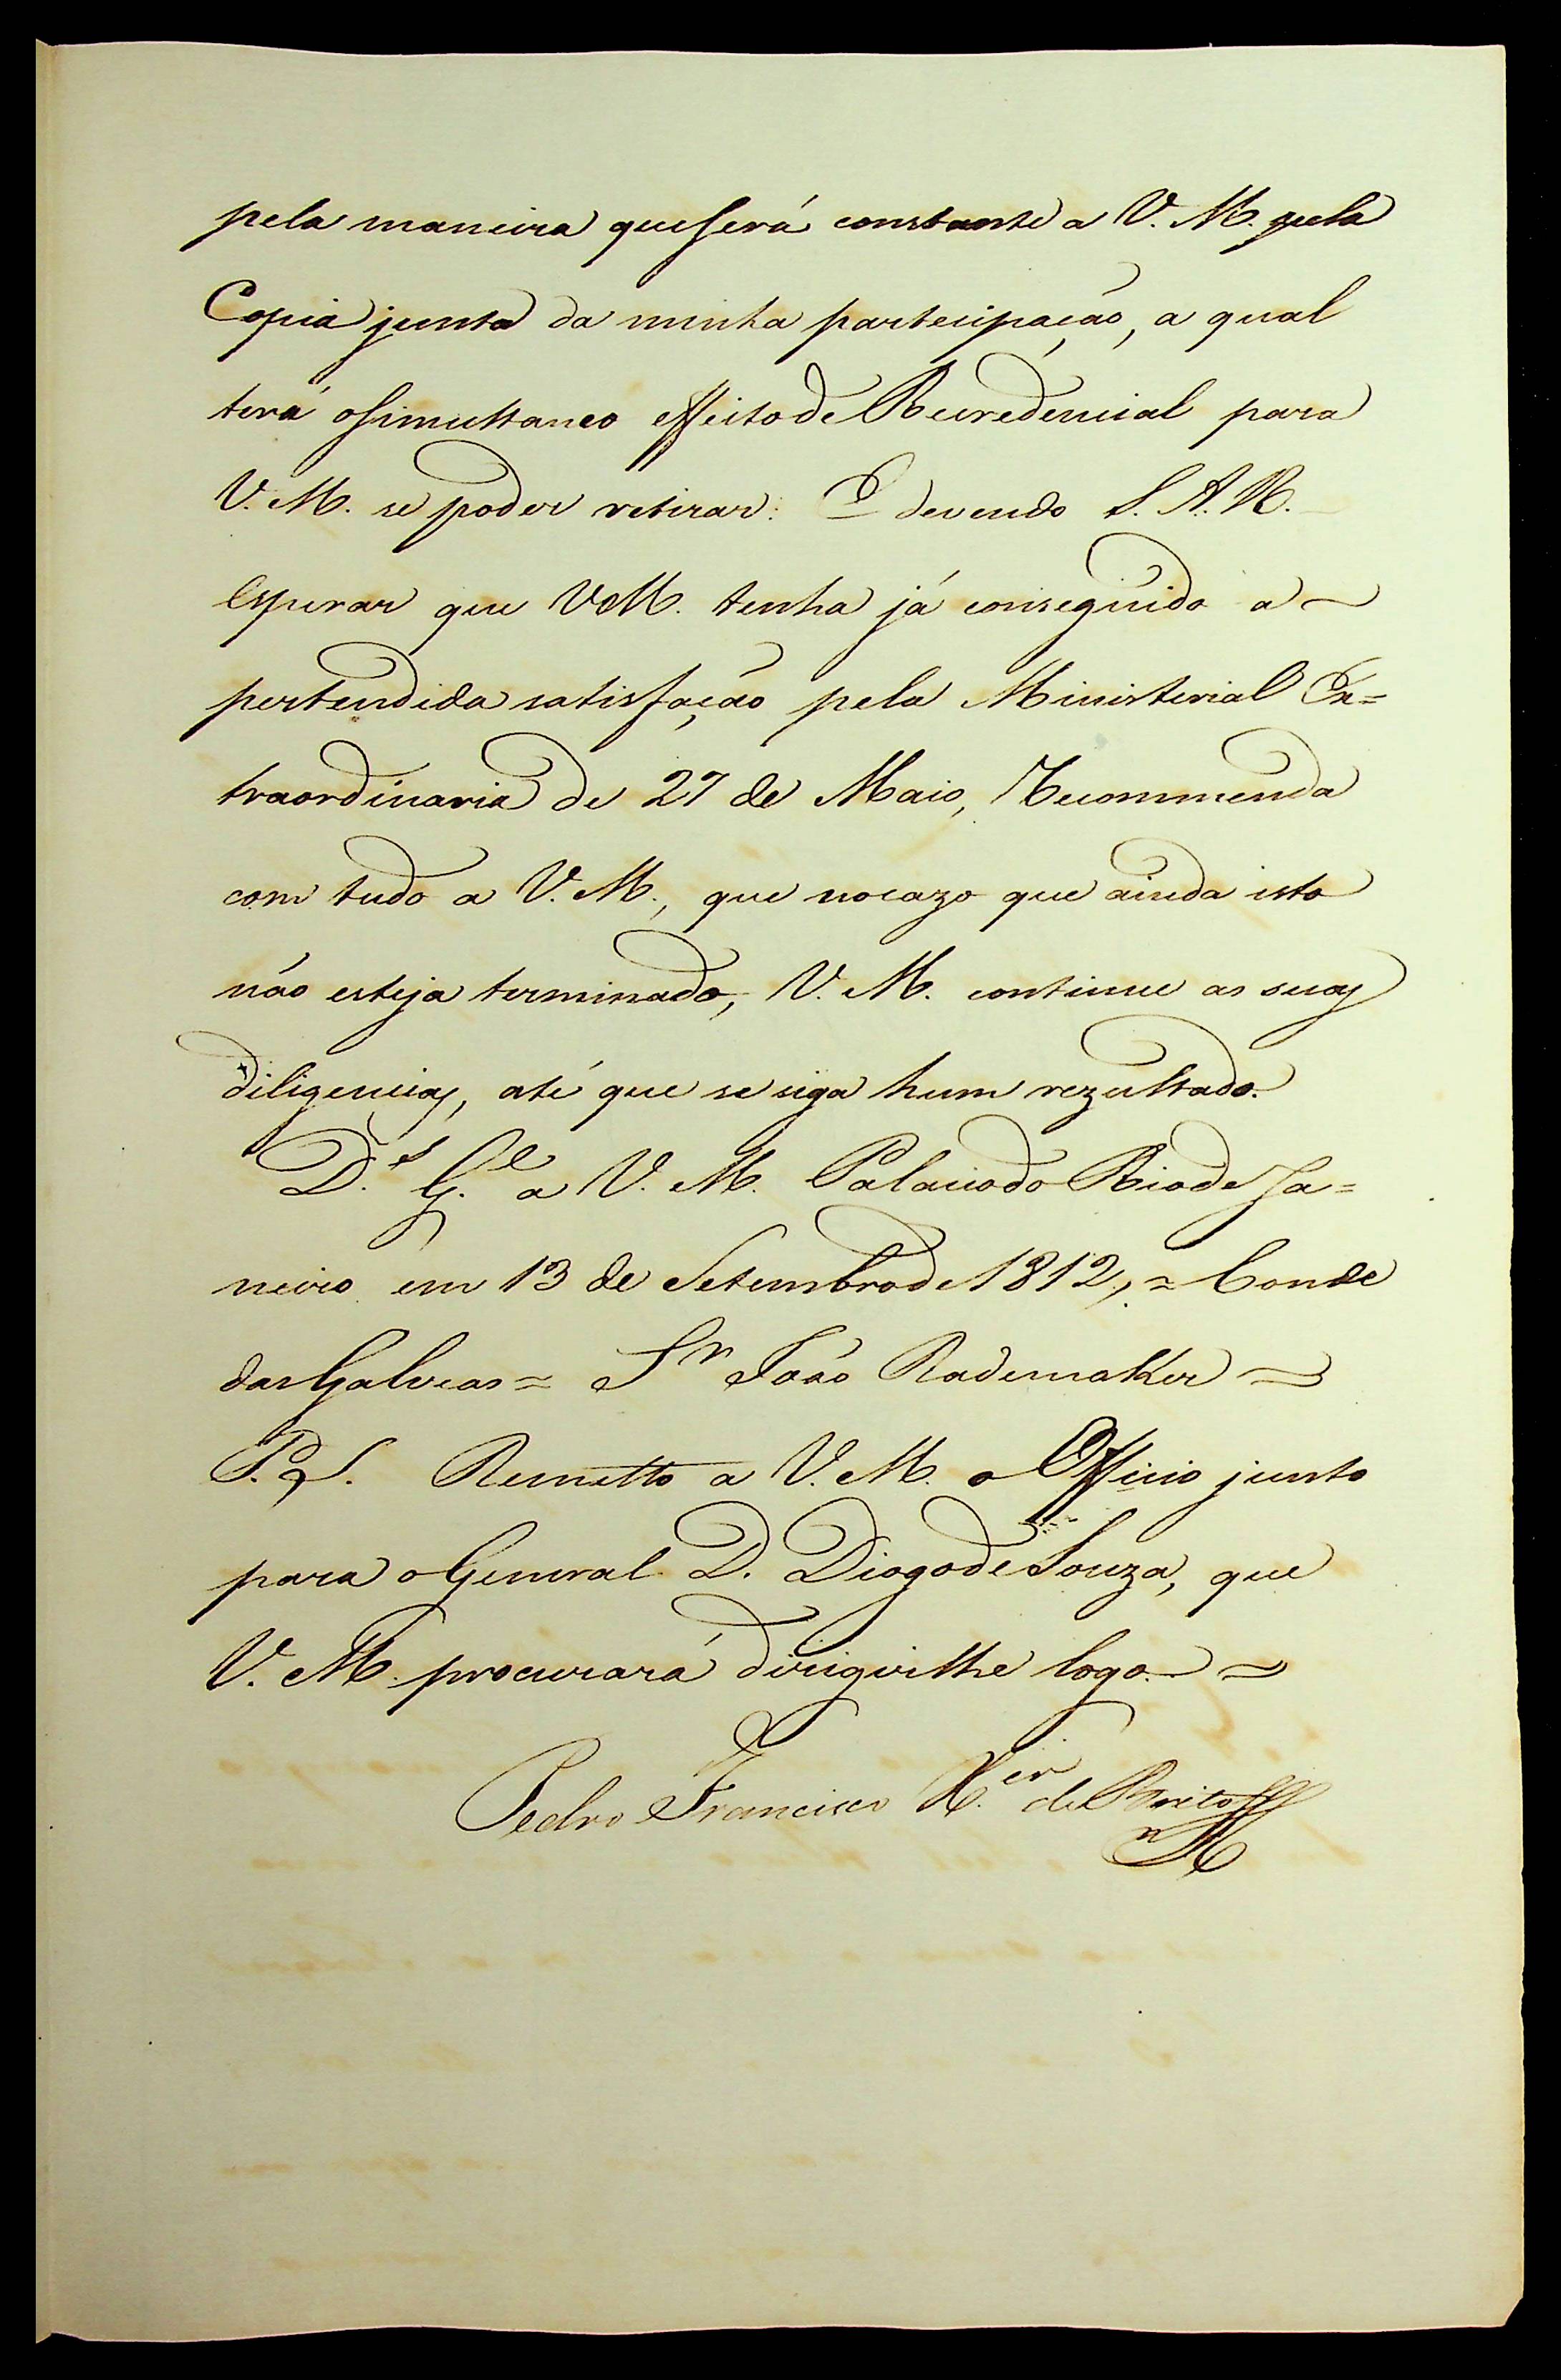 pela maneira que será constante a V. M. pela
Copia junta da minha partecipação, a qual
terá o simultaneo effeito de Recredencial para
V. M. se poder retirar: E devendo S. A. R.
esperar que V. M. tenha já conseguido a
pertendida satisfação pela Ministerial Ex=
traordinaria de 27 de Maio, Recommenda
com tudo a V. M., que no cazo que ainda isto
não esteja terminado, V. M. continue as suas
diligencias, até que se siga hum rezultado.
D.s G.e a V. M. Palacio do Rio de Ja=
neiro em 13 de Setembro de 1812, = Conde
das Galveas = Sr João Rademaker =
P. S. Remetto a V. M. o Officio junto
para o General D. Diogo de Souza, que
V. M. procurará dirigirlhe logo. =
Pedro Francisco X.er de Brito